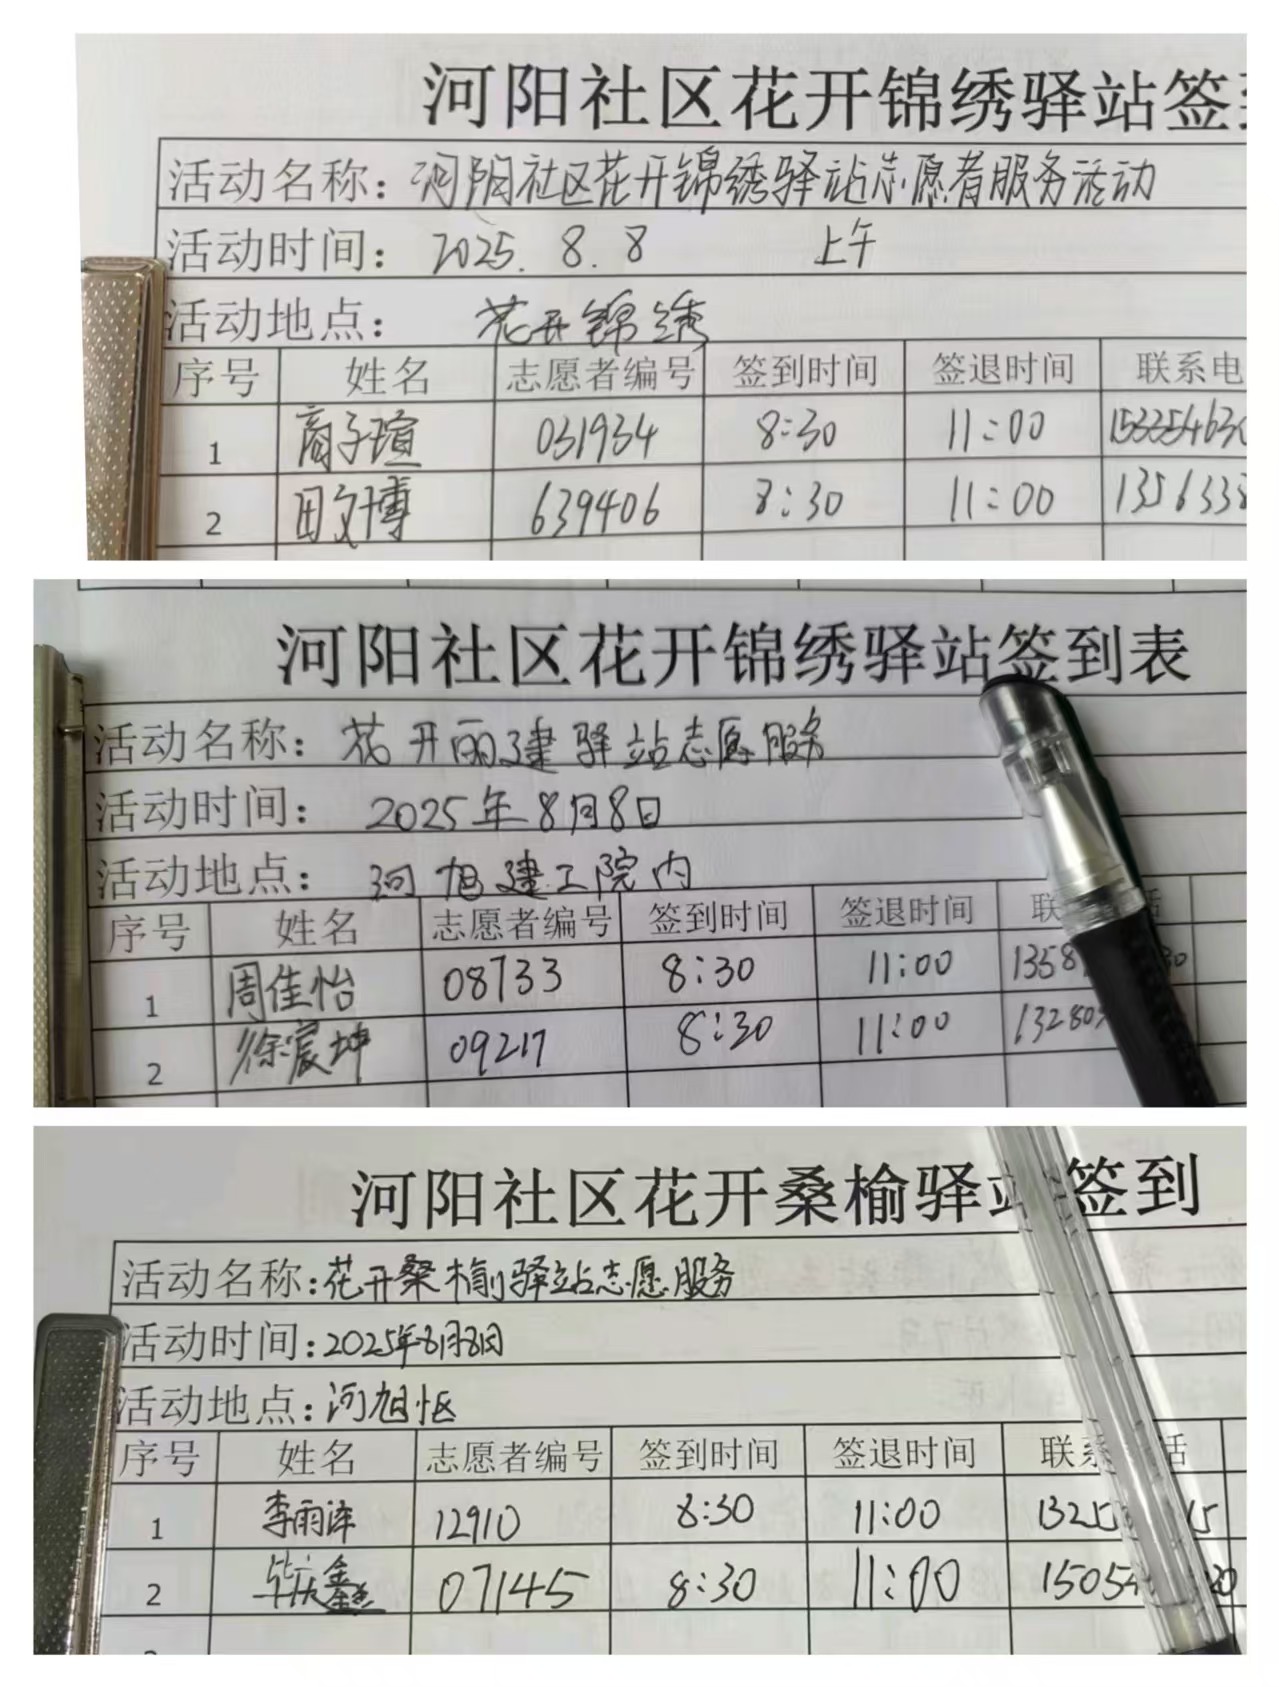 河阳社区花开锦绣驿站签
活动名称：河阳社区花开锦绣驿站志愿者服务活动
活动时间：2025.8.8 上午
活动地点：花开锦绣
序号 姓名 志愿者编号 签到时间 签退时间 联系电
1 商子瑄 031934 8:30 11:00 153354630
2 田文博 639406 8:30 11:00 1356338
河阳社区花开锦绣驿站签到表
活动名称：花开丽建驿站志愿服务
活动时间：2025年8月8日
活动地点：河旭建工院内
序号 姓名 志愿者编号 签到时间 签退时间 联 话
1 周佳怡 08733 8:30 11:00 1358 30
2 徐宸坤 09217 8:30 11:00 13280
河阳社区花开桑榆驿站签到
活动名称：花开桑榆驿站志愿服务
活动时间：2025年8月8日
活动地点：河旭
序号 姓名 志愿者编号 签到时间 签退时间 联系 话
1 李雨泽 12910 8:30 11:00 1325 15
2 鑫 07145 8:30 11:00 1505 20